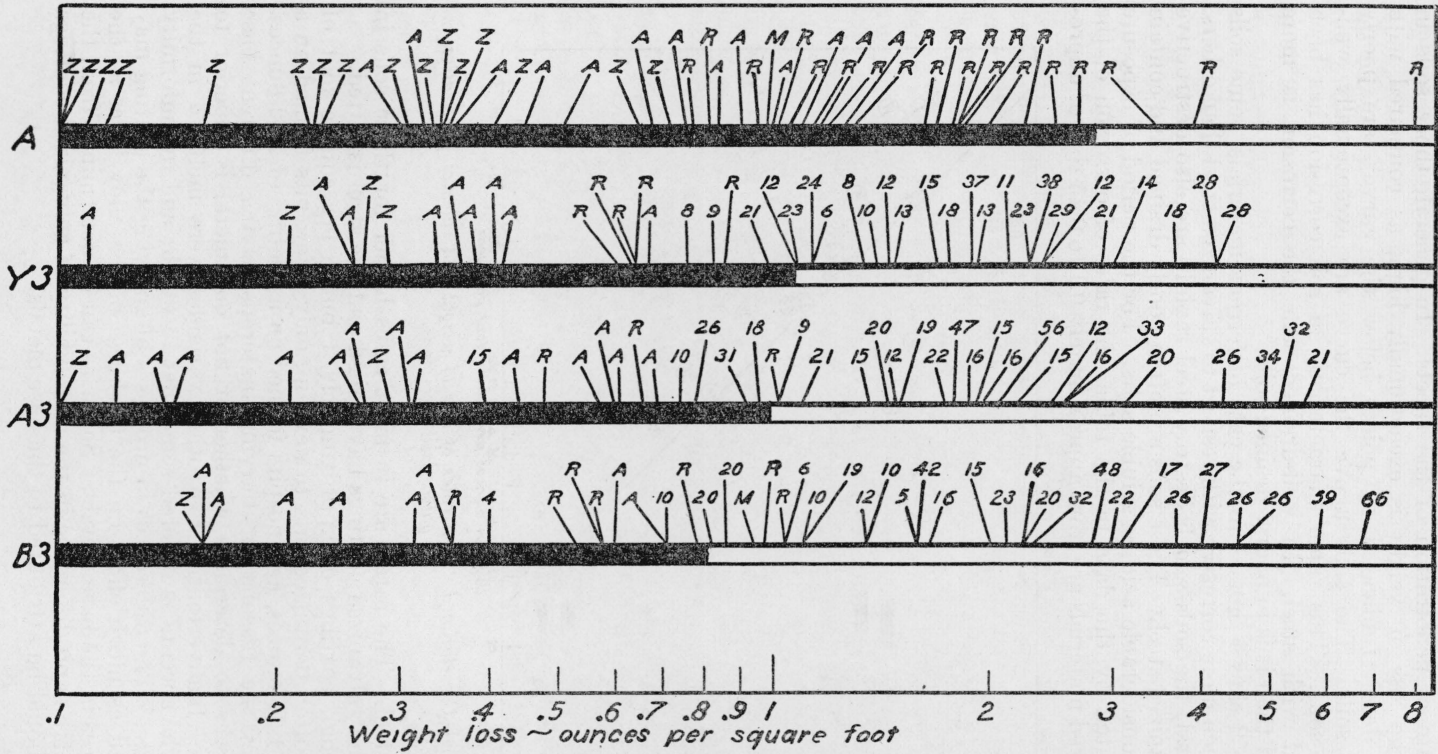 A Z Z A A R A M R A A A R R R R R
Z Z Z Z Z Z Z Z A Z Z Z A Z A A Z Z R A R A R R R R R R R R R R R R
A
A Z A A R R R 12 24 8 12 15 37 11 38 12 14 28
A Z A Z A A A R R A 8 9 21 23 6 10 13 18 13 23 29 21 18 28
Y3
A A A R 26 18 9 20 19 47 15 56 12 33 32
Z A A A A A Z A 15 A R A A A 10 31 R 21 15 12 22 16 16 15 16 20 26 34 21
A3
A A R A R 20 R 6 19 10 42 15 16 48 17 27
Z A A A A R 4 R R A 10 20 M R 10 12 5 16 23 20 32 22 26 26 26 59 66
B3
.1 .2 .3 .4 .5 .6 .7 .8 .9 1 2 3 4 5 6 7 8
Weight loss ~ ounces per square foot